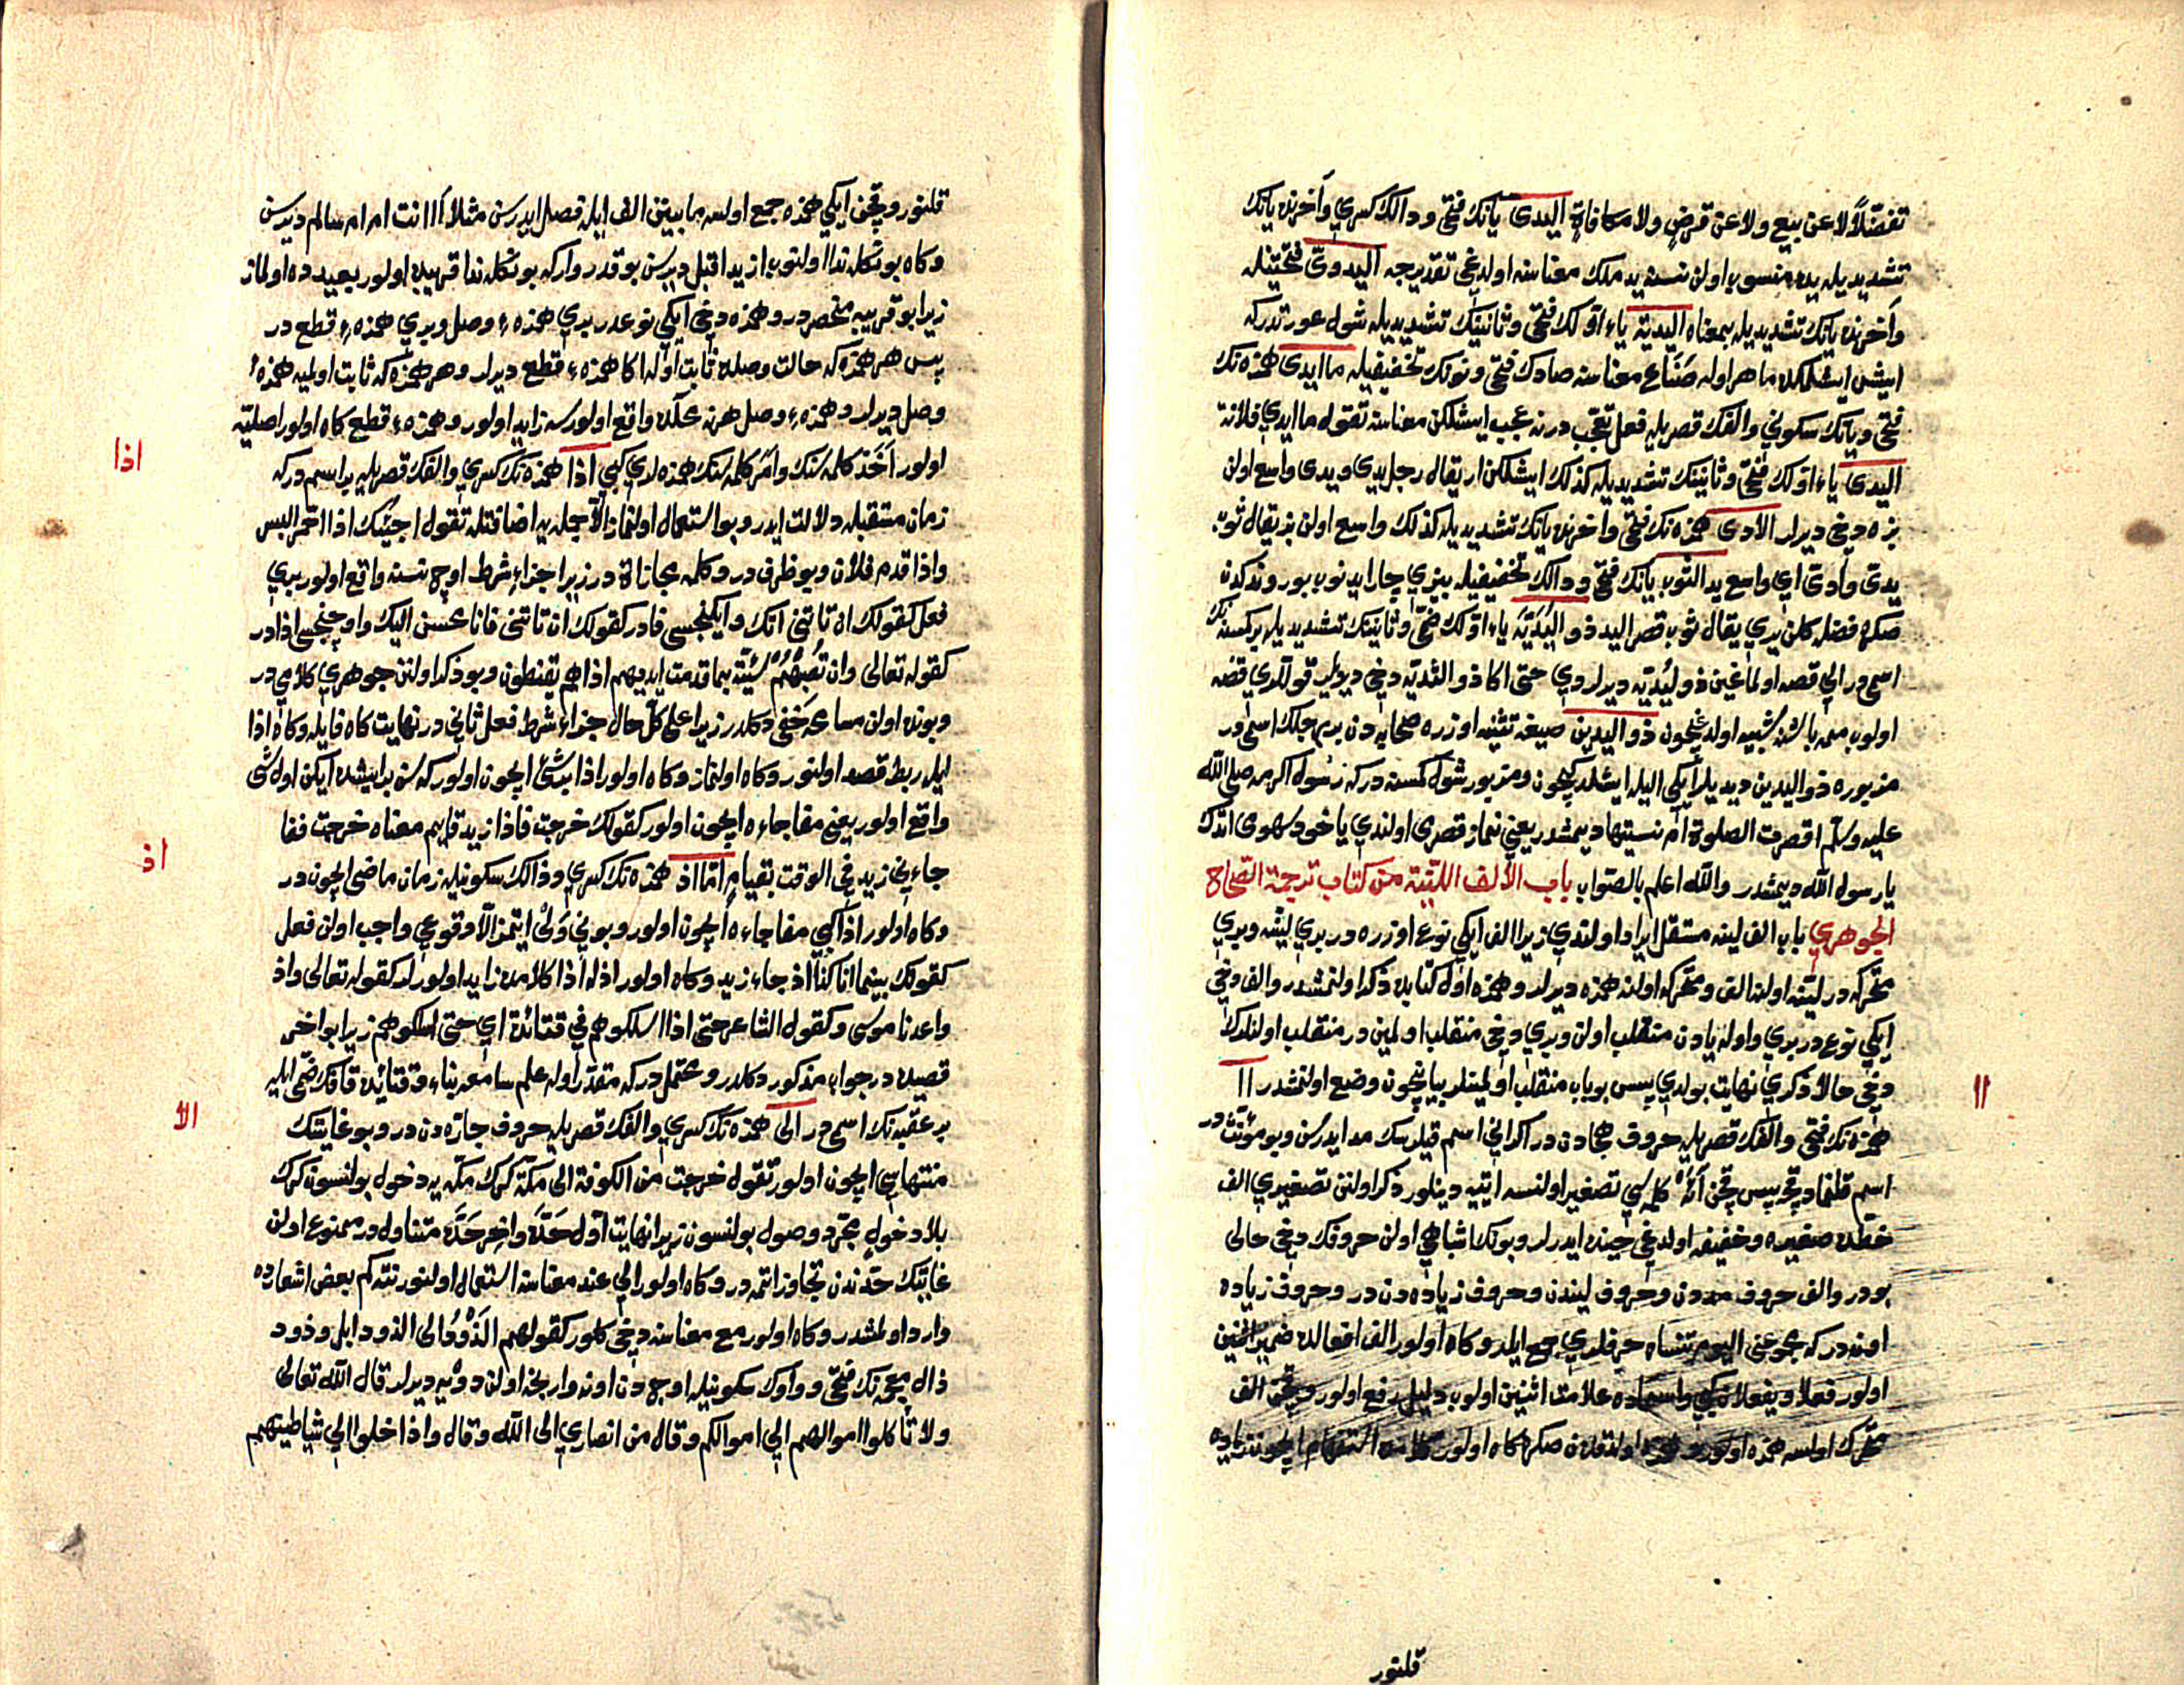 تفضّلاً لا عن بيع ولا عن قرض ولا مكافاة اليدى يانك فتحى و دالك كسرى وآخرنده يانك
تشديديله يده منسوب اولن نسنه يد ملك معناسنه اولديغى تقديرجه اليدوىّ فتحتينله
وآخرنده يانك تشديديله بمعناه اليديّة ياء اوّلك فتحى وثانينك تشديديله شول عورتدركه
ايشن ايشلمكده ماهر اوله صَنَاع معناسنه صادك فتحى ونونك تخفيفيله ما ايدى همزه نك
فتحى ويانك سكونى والفك قصريله فعل تعجّب در نه عجب ايشلكن معناسنه تقول ما ايدى فلانة
اليدى ياء اوّلك فتحى وثانينك تشديديله كذلك ايشلكن ار يقال رجل يدى ويدى واسع اولن
بزه دخى ديرلر الأدى همزه نك فتحى وآخرنده يانك تشديديله كذلك واسع اولن بز يقال ثوب
يدىّ وأدىّ اى واسع يد الثوب يانك فتحى و دالك تخفيفيله بيزى چار ايدنوب بوروندكدن
صكره فضله كلن يرى يقال ثوب قصر اليد ذو اليُدَيّة ياء اوّلك ضمّى وثانينك تشديديله بر كسنه نك
اسمى در الى قصه اولماغين ذو يُدَيّه ديرلردى حتى اكا ذو الثديّه دخى ديرلر قوللرى قصه
اولوب ممه باشنه شبيه اولديغيچون ذو اليدين صيغه تثنيه اوزره صحابه دن بر رجلك اسمى در
مزبوره ذو اليدين ديديلر ايكى اليله ايشلدكيچون ومزبور شول كمسنه دركه رسول اكرم صلى الله
عليه وسلّم اقصرت الصلوة ام نسيتها ديمشدر يعنى نماز قصرى اولندى ياخود سهوى اتدك
يا رسول الله ديمشدر والله اعلم بالصّواب باب الألف الليّنة من كتاب ترجمة الصّحاح
الجوهري باب الف لينه مستقل ايراد اولندى زيرا الف ايكى نوع اوزره در برى ليّنه وبرى
متحركه در ليّنه اولنه الف ومتحركه اولنه همزه ديرلر وهمزه اوّل كتابده ذكر اولنمشدر والف دخى
ايكى نوع در برى واوله يادن منقلب اولن وبرى دخى منقلب اولمين در منقلب اولنلرك
دخى حالا ذكرى نهايت بولدى پس بو باب منقلب اولمينلر بيانيچون وضع اولنمشدر اا
همزه نك فتحى والفك قصريله حروف هجادن در اكر انى اسم قيلرسك مد ايدرسن وبو مؤنّث در
اسم قلنمادقجه پس قچن آءٌ كلمه سى تصغير اولنسه اييه دينلور ذكر اولنن تصغيرى الف
خطده صغيره وخفيفه اولديغى حينده ايدرلر وبونك اشباهى اولن حروفك دخى حالى
بودر والف حروف مددن وحروف لينندن وحروف زياده دن در وحروف زياده
اوندركه مجموعنى اليوم تنساه حرفلرى جمع ايلر و كاه اولور الف افعالده ضمير اثنين
اولور فعلا ويفعلان كبى واسماده علامت اثنين اولوب دليل رفع اولور وقچن الف
متحرك اولسه همزه اولور كاه اولور زياده
قلنور
قلنور وقچن ايكى همزه جمع اولسه مابينن الف ايله فصل ايدرسن مثلا أاانت ام ام سالم ديرسن
وكاه بو شكله ندا اولنوب ازيد اقبل ديرسن بو قدر واركه بو شكله ندا قريبده اولور بعيده ده اولماز
زيرا بو قريبه منحصردر وهمزه دخى ايكى نوعدر برى همزه ء وصل وبرى همزه ء قطع در
پس هر همزه كه حالت وصلده ثابت اوله اكا همزه ء قطع ديرلر وهر همزه كه ثابت اولميه همزه ء
وصل ديرلر وهمزه ء وصل هر نه محلده واقع اولورسه زايد اولور وهمزه ء قطع كاه اولور اصليّه
اولور اَخَذَ كلمه سنك وامَر كلمه سنك همزه لرى كبى اذا همزه نك كسرى والفك قصريله بر اسم دركه
زمان مستقبله دلالت ايدر وبو استعمال اولنماز الّا جمله يه اضافتله تقول اجيئك اذا احمرّ البسر
واذا قدم فلان وبو ظرف در وكلمه مجازاة در زيرا جزاء شرط اوچ نسنه واقع اولور برى
فعل كقولك ان تاتنى اتك وايكنجسى فادر كقولك ان تاتنى فانا محسن اليك واوچنجسى اذا در
كقوله تعالى وان تُصِبْهُمْ سَيّئة بما قدمت ايديهم اذاهم يقنطون وبو ذكر اولنن جوهرى كلامى در
وبونده اولن مسامحه خفى دكلدر زيرا على كلّ حال جزاء شرط فعل ثانى در نهايت كاه فايله وكاه اذا
ايله ربط قصد اولنور وكاه اولنماز وكاه اولور اذا بر شئ ايچون اولور كه سن بر ايشده ايكن اول شى
واقع اولور يعنى مفاجاءه ايچون اولور كقولك خرجت فاذا زيد قايم معناه خرجت ففا
جاءنى زيد فى الوقت بقيام امّا اذ همزه نك كسرى وذالك سكونيله زمان ماضى ايچون در
وكاه اولور اذا كبى مفاجاءه ايچون اولور وبونى وَلْى ايتمز الّا وقوعى واجب اولن فعل
كقولك بينما انا كذا اذ جاء زيد وكاه اولور اذله اذا كلامده زايد اولورلر كقوله تعالى واذ
واعدنا موسى وكقول الشاعر حتى اذا اسلكوهم فى قتائدة اى حتى اسلكوهم زيرا بو اخر
قصيده در جواب مذكور دكلدر ومحتمل دركه مقدّر اوله علم سامعه بناء وقتائده قافك ضمّى ايله
بر عقبه نك اسمى در الى همزه نك كسرى والفك قصريله حروف جارّه دن در وبو غايتنك
منتهاسى ايچون اولور تقول خرجت من الكوفة الى مكّة كرك مكّه يه دخول بولنسون كرك
بلا دخول مجرّد وصول بولنسون زيرا نهايت اوّل حَدّه واخر حَدّه متناول در ممنوع اولن
غايتك حدّندن تجاوز اتمه در وكاه اولور الى عند معناسنه استعمال اولنور نته كم بعض اشعارده
وارد اولمشدر وكاه اولور مع معناسنه دخى كلور كقولهم الذَّوْدُ الى الذود ابل وذود
ذال معجمه نك فتحى وواوك سكونيله اوچ دن اونه وارنجه اولن دوه يه ديرلر قال الله تعالى
ولا تأكلوا اموالهم الى اموالكم وقال من انصارى الى الله وقال واذا خلوا الى شياطينهم
اا
اذا
اذ
الا